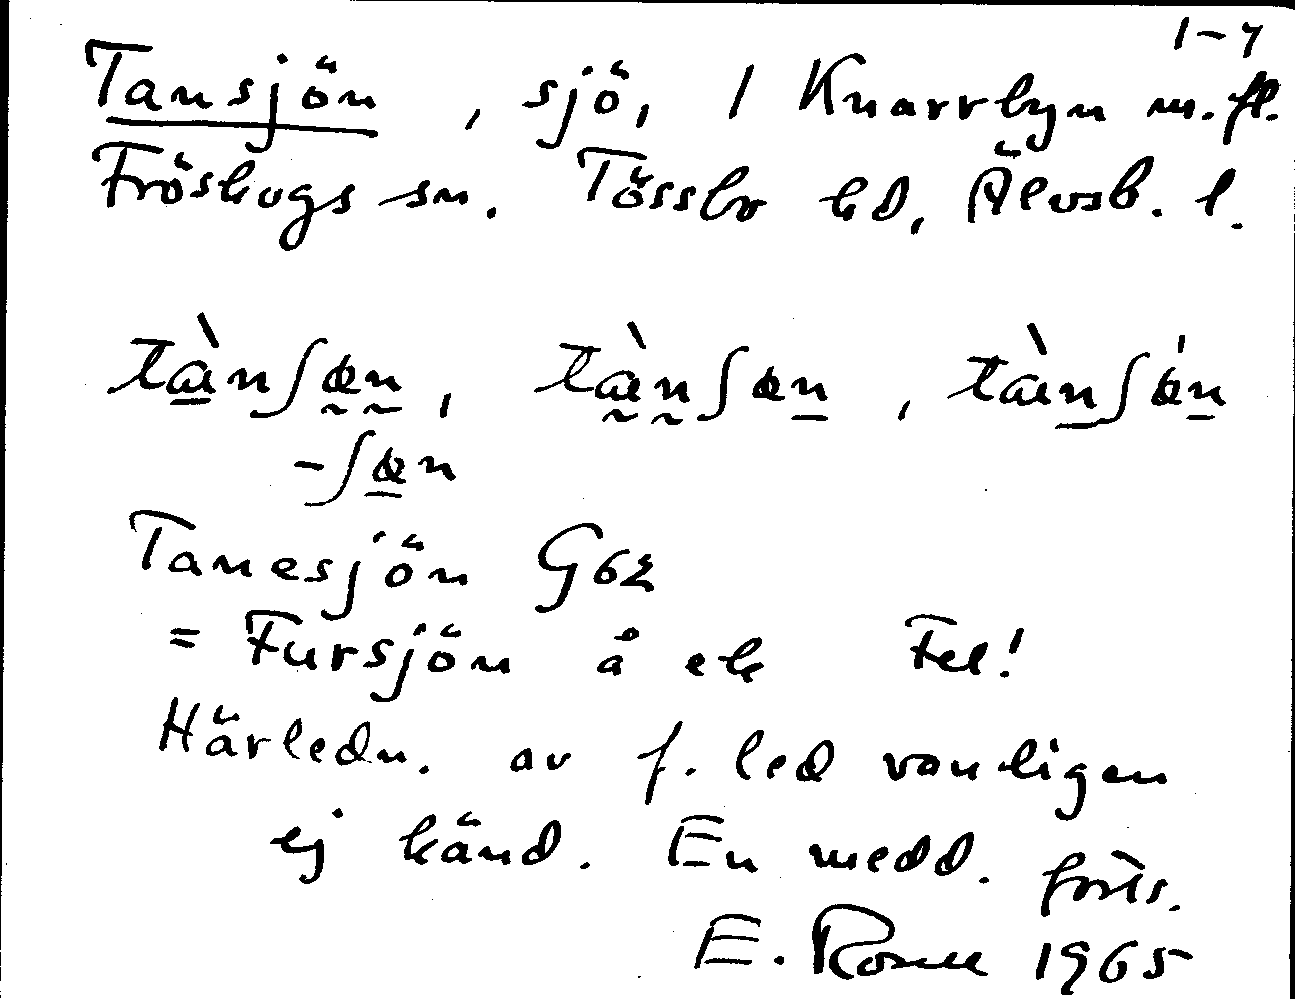 1-7
Tansjön, sjö, 1 Knarrbyn m.fl.
Fröskogs sn. Tössbo hd, Älvsb. l.
tànʃøn, tæ̀nʃøn, tæ̀nʃǿn
-ʃøn
Tanesjön G62
= Fursjön å ek Fel!
Härledn. av f. led vanligen
ej känd. En medd. forts.
E. 1965